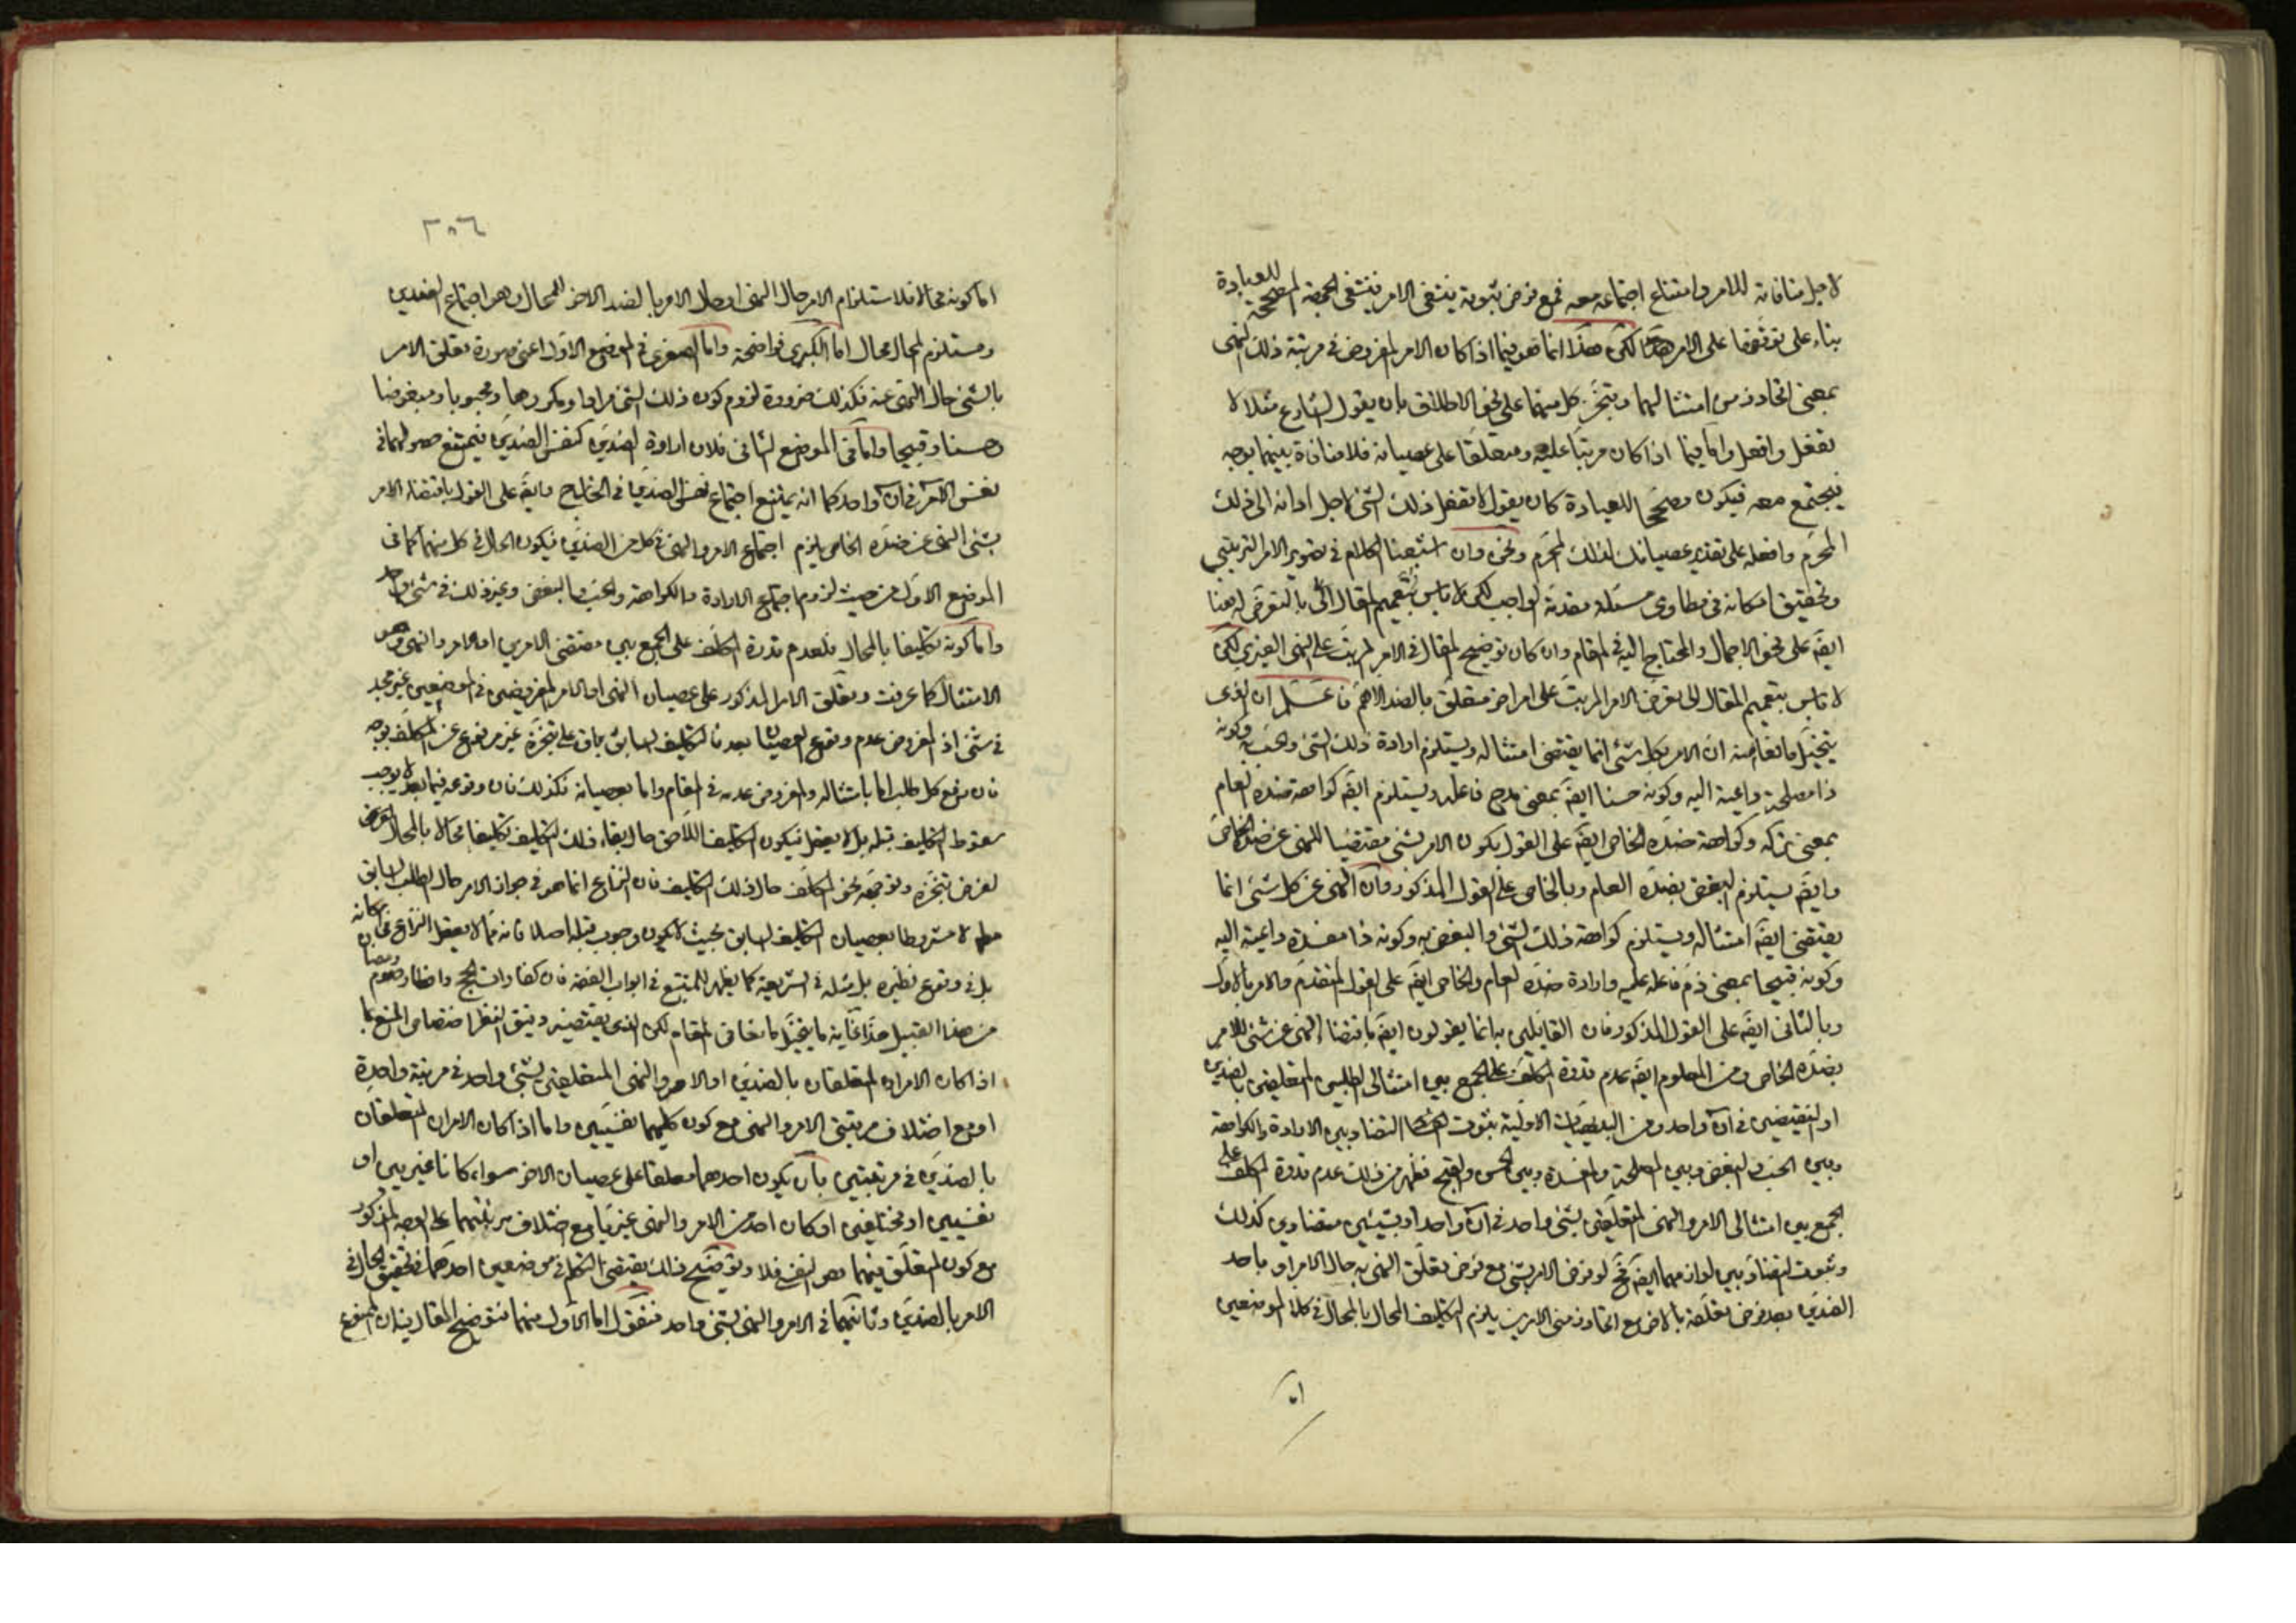 لاجل منافاته للامر وامتناع اجتماعه معه فمع فرض ثبوته ينتفى الامر فينتفى الجهة المصححة للعبادة
بناء على توقفها على الامر هذا لكن هذا انما هو فيما اذا كان الامر المفروض فى مرتبة ذلك النهى
بمعنى اتحاد زمن امتثاليهما وتنجز كل منهما على نحو الاطلاق بان يقول الشارع مثلا لا
تفعل وافعل واما فيما اذا كان مرتبا عليه ومتعلقا على عصيانه فلا منافاة بينهما بوجه
فيجتمع معه فيكون مصححا للعبادة كان يقول لا تفعل ذلك الشئ لاجل ادائه الى ذلك
المحرم وافعله على تقدير عصيانك لذلك المحرم ونحن وان اشبعنا الكلام فى تصوير الامر الترتيبى
وتحقيق امكانه فى مطاوى مسئلة مقدمة الواجب لكن لا باس بتعميم المقال الى بالتعرض له هنا
ايضً على نحو الاجمال والمحتاج اليه فى المقام وان كان توضيح المقال فى الامر المرتب على النهى الغيرى لكن
لا باس بتعميم المقال الى تعرض الامر المرتب على امر اخر متعلق بالضد الاهم فاعلم ان الذى
يتخيل مانعا منه ان الامر بكل شئ انما يقتضى امتثاله ويستلزم ارادة ذلك الشئ والحب به وكونه
ذا مصلحة داعية اليه وكونه حسنا ايضً بمعنى مدح فاعله ويستلزم ايضً كراهة ضده العام
بمعنى تركه وكراهة ضده الخاص ايضً على القول بكون الامر بشئ مقتضيا للنهى عن ضده الخاص
وايضً يستلزم البغض بضده العام وبالخاص على القول المذكور وان النهى عن كل شئ انما
يقتضى ايضً امتثاله ويستلزم كراهة ذلك الشئ والبغض به وكونه ذا مفسدة داعية اليه
وكونه قبيحا بمعنى ذم فاعله عليه وارادة ضده العام والخاص ايضً على القول المتقدم والامر بالاول
وبالثانى ايضً على القول المذكور فان القائلين به انما يقولون ايضً باقتضاء النهى عن شئ للامر
بضده الخاص ومن المعلوم ايضً عدم قدرة المكلف على الجمع بين امتثالى الطلبين المتعلقين بالضدين
او النقيضين فى آن واحد ومن البديهيات الاولية ثبوت التضاد بين الارادة والكراهة
وبين الحب والبغض وبين المصلحة والمفسدة وبين الحسن والقبح فظهر من ذلك عدم قدرة المكلف على
الجمع بين امتثالى الامر والنهى المتعلقين بشئ واحد فى آن واحد او بشيئين متضادين كذلك
وثبوت التضاد بين لوازمهما ايضً فح لو فرض الامر بشئ مع فرض تعلق النهى به حال الامر او باحد
الضدين بعد فرض تعلقه بالاخر مع اتحاد زمنى الامرين يلزم التكليف المحال بالمحال فى كلا الموضعين
ا
٣٠٦
اما كونه محالا فلاستلزام الامر حال النهى او حال الامر بالضد الاخر للمحال وهو اجتماع الضدين
ومستلزم المحال محال اما الكبرى فواضحة واما الصغرى فى الموضع الاول اعنى صورة تعلق الامر
بالشئ حال النهى عنه فكذلك ضرورة لزوم كون ذلك الشئ مرادا ومكروها ومحبوبا ومبغوضا
وحسنا وقبيحا واما فى الموضع الثانى فلان ارادة الضدين كنفس الضدين فيمتنع حصولهما فى
نفس الآمر فى آن واحد كما انه يمتنع اجتماع نفس الضدين فى الخارج وايضً على القول باقتضاء الامر
بشئ النهى عن ضده الخاص يلزم اجتماع الامر والنهى فى كل من الضدين فيكون الحال فى كل منهما كما فى
الموضع الاول من حيث لزوم اجتماع الارادة والكراهة والحب والبغض وغير ذلك فى شئ واحد
واما كونه تكليفا بالمحال فلعدم قدرة المكلف على الجمع بين مقتضى الامرين او الامر والنهى وهو
الامتثال كما عرفت وتعلق الامر المذكور على عصيان النهى او الامر المفروضين فى الموضعين غير مجد
فى شئ اذ المفروض عدم وقوع العصيان بعد فالتكليف السابق باق على تنجزه غير مرفوع عن المكلف بوجه
فان رفع كل طلب اما بامتثاله والمفروض عدمه فى المقام واما بعصيانه فكذلك فان وقوعه فيما بعد لا يوجب
سقوط التكليف قبله بل لا يعقل فيكون التكليف اللاحق حال بقاء ذلك التكليف تكليفا محالا بالمحال
لفرض تنجزه وتوجهه نحو المكلف حال ذلك التكليف فان النزاع انما هو فى جواز الامر حال الطلب السابق
مطلقا لا مشروطا بعصيان التكليف السابق بحيث لا يكون وجوب قبله اصلا فانه مما لا يعقل النزاع فى امكانه
بل فى وقوع نظيره بل مثله فى الشريعة كما يظهر للمتتبع فى ابواب الفقه فان كفارات الحج وافطار صوم رمضان
من هذا القبيل هذا غاية ما يتخيل مانعا فى المقام لكن الذى يقتضيه دقيق النظر اختصاص المنع بما
اذا كان الامران المتعلقان بالضدين او الامر والنهى المتعلقين بشئ واحد فى مرتبة واحدة
او مع اختلاف مرتبتى الامر والنهى مع كون كليهما نفسيين واما اذا كان الامران المتعلقان
بالضدين فى مرتبتين بان يكون احدهما معلقا على عصيان الاخر سواء كانا غيريين او
نفسيين او مختلفين او كان احد من الامر والنهى غيريا مع اختلاف مرتبتهما على الوجه المذكور
مع كون المتعلق منهما هو النفسى فلا وتوضيح ذلك يقتضى التكلم فى موضعين احدهما فى تحقيق الحال فى
الامر بالضدين وثانيهما فى الامر والنهى بشئ واحد فنقول اما الاول منهما فتوضيح المقال فيه ان الممنوع